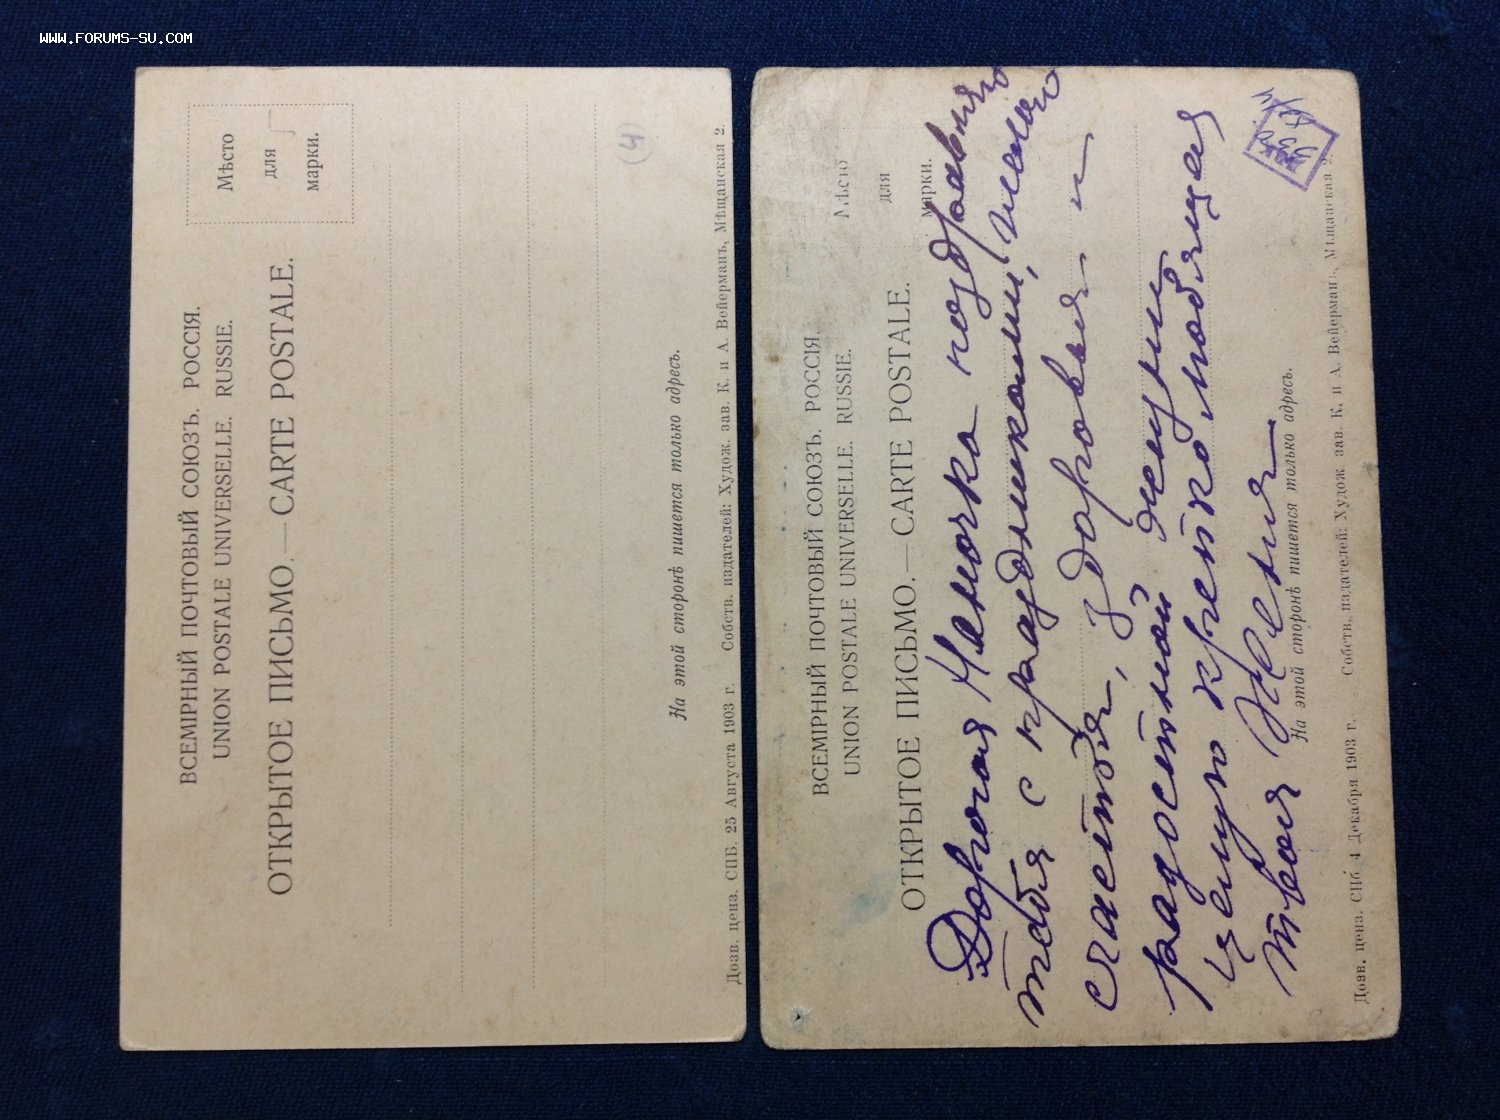 WWW.FORUMS-SU.COM
ВСЕМІРНЫЙ ПОЧТОВЫЙ СОЮЗЪ. РОССІЯ.
UNION POSTALE UNIVERSELLE. RUSSIE.
ОТКРЫТОЕ ПИСЬМО. — CARTE POSTALE.
Мѣсто
для
марки.
(4)
На этой сторонѣ пишется только адресъ.
Дозв. ценз. СПБ. 25 Августа 1903 г. Собств. издателей: Худож. зав. К. и А. Вейерманъ, Мѣщанская 2.
ВСЕМІРНЫЙ ПОЧТОВЫЙ СОЮЗЪ. РОССІЯ
UNION POSTALE UNIVERSELLE. RUSSIE.
ОТКРЫТОЕ ПИСЬМО. — CARTE POSTALE.
Мѣсто
для
марки.
Дорогая поздравляю
тебя с праздником, желаю
счастья, здоровья и
радостной жизни
целую крепко любящая
твоя Женя
На этой сторонѣ пишется только адресъ.
Дозв. ценз. СПб 4 Декабря 1903 г. Собств. издателей: Худож зав. К. и А. Вейерманъ, Мѣщанская 2.